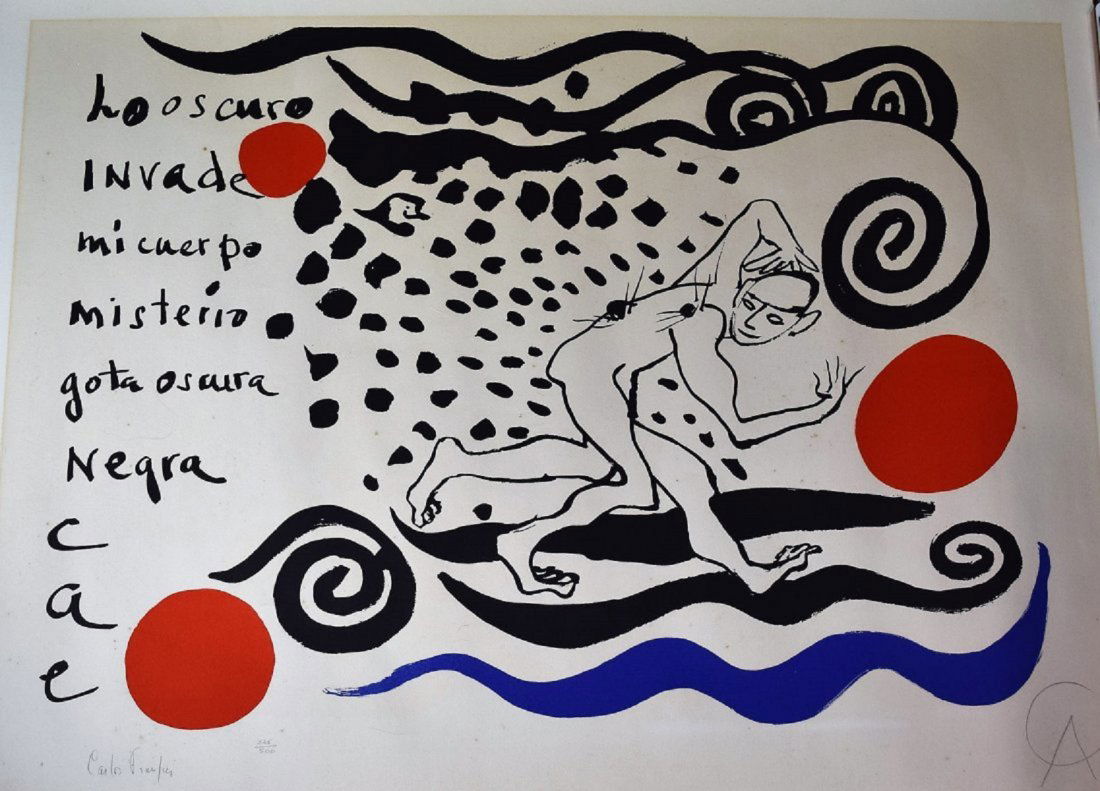 Lo oscuro
INVADE
mi cuerpo
misterio
gota oscura
Negra
c
a
e
Carlos Franqui
500
CA